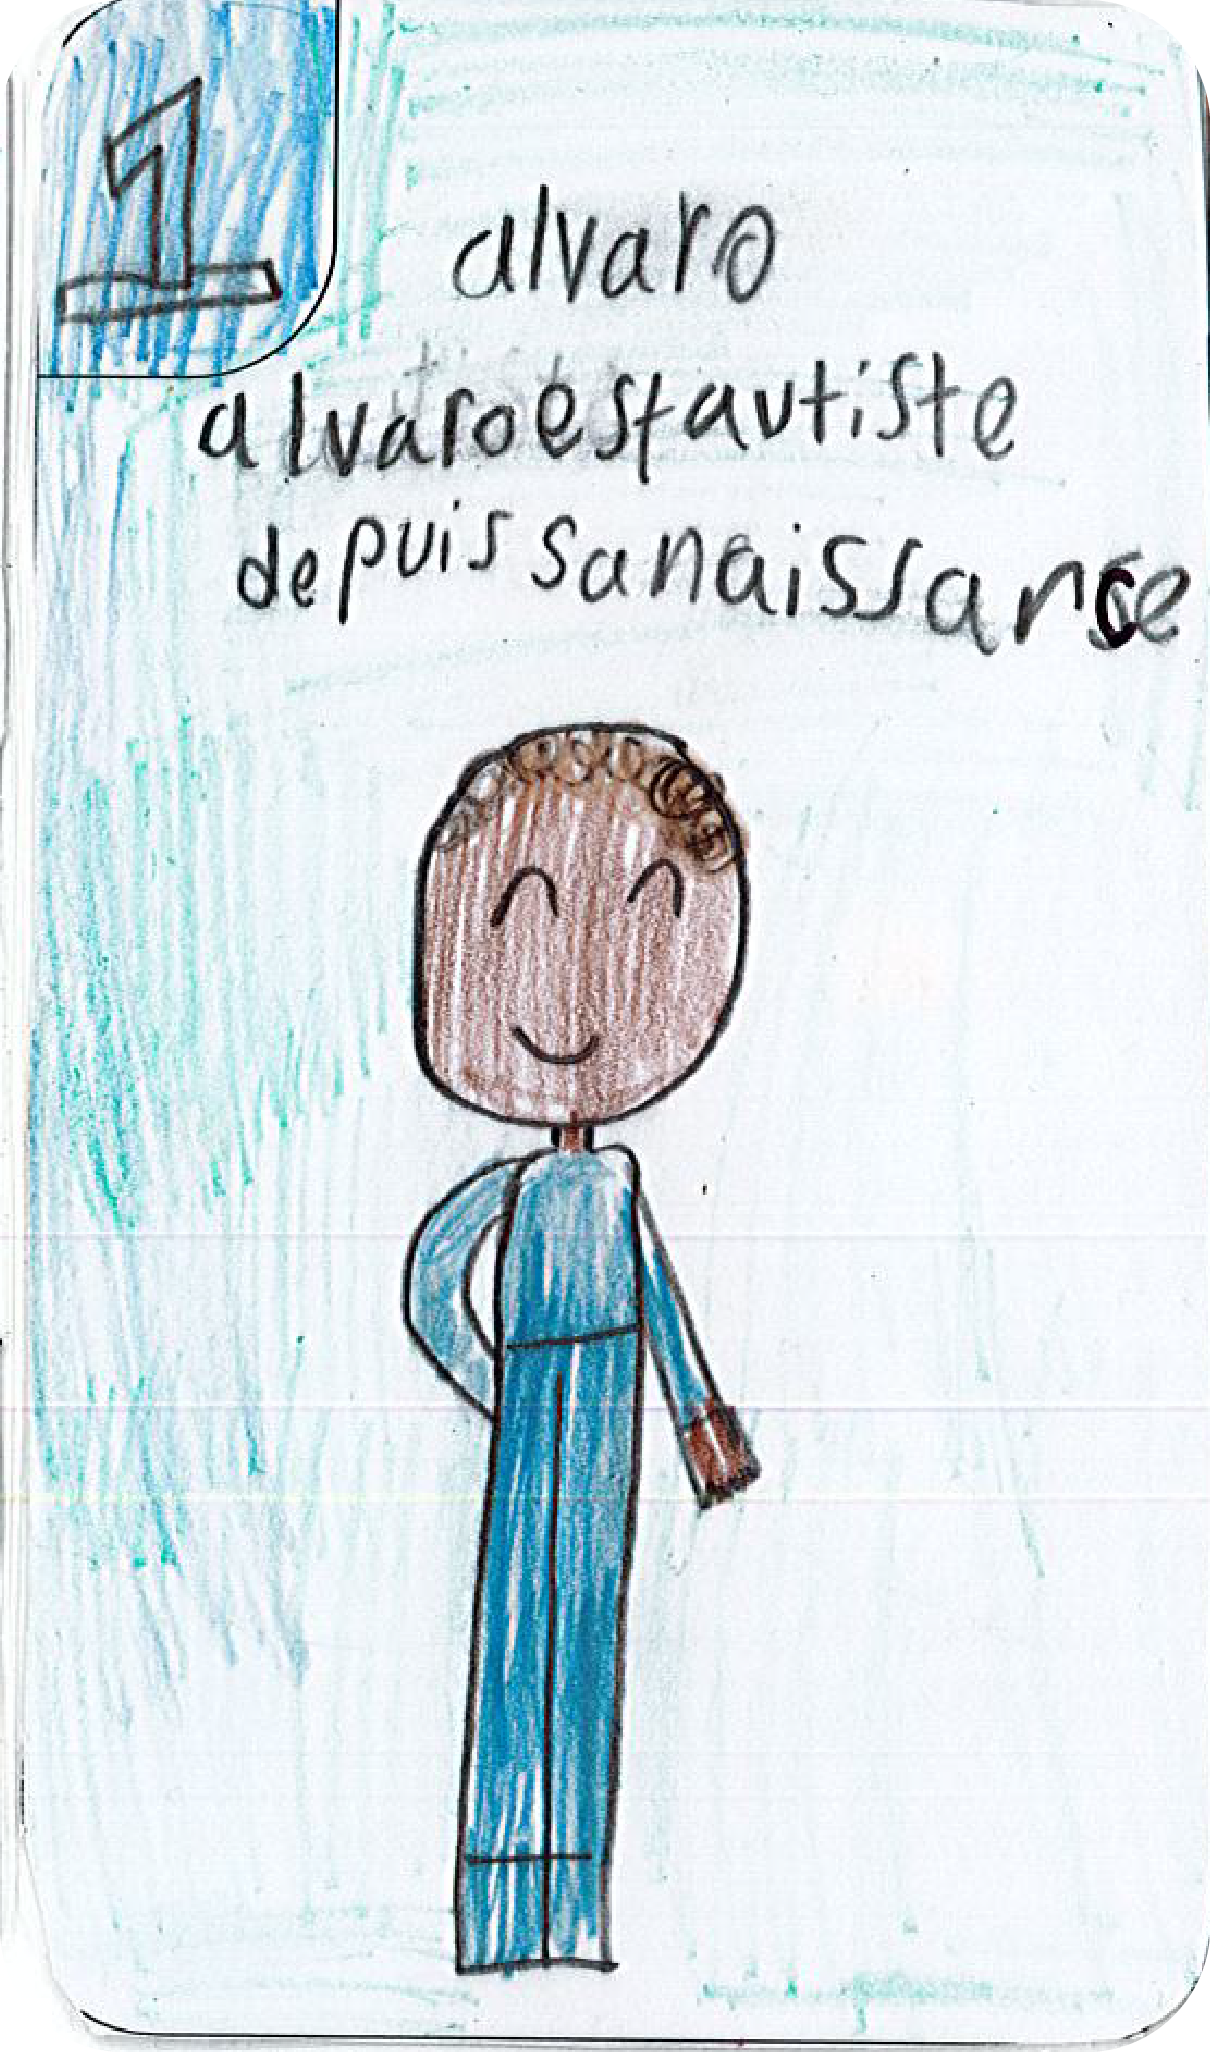 1
alvaro
alvaro est autiste
depuis sa naissance